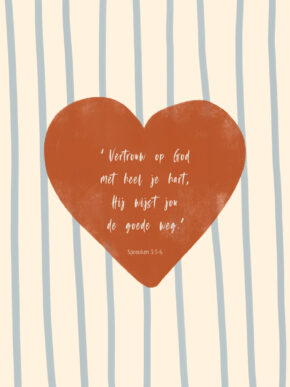 ‘ Vertrouw op God
met heel je hart,
Hij wijst jou
de goede weg.’
Spreuken 3:5-6